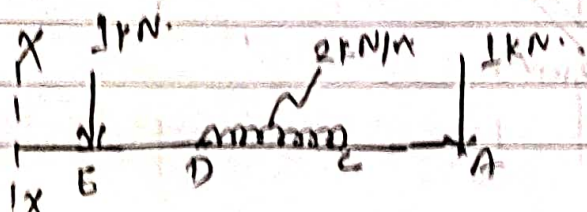 X 1kN. 2kN/m 1kN.
1x E D C A